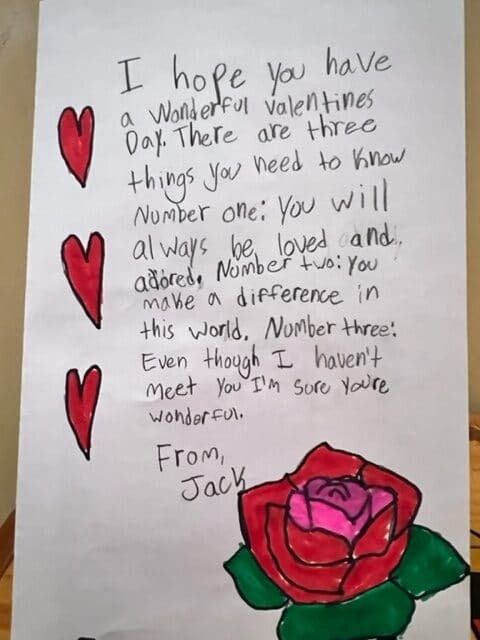 I hope you have
a Wonderful valentines
Day. There are three
things you need to know
Number one: You will
always be loved and
adored. Number two: You
make a difference in
this world. Number three:
Even though I haven't
meet you I'm sure you're
wonderful.
From,
Jack